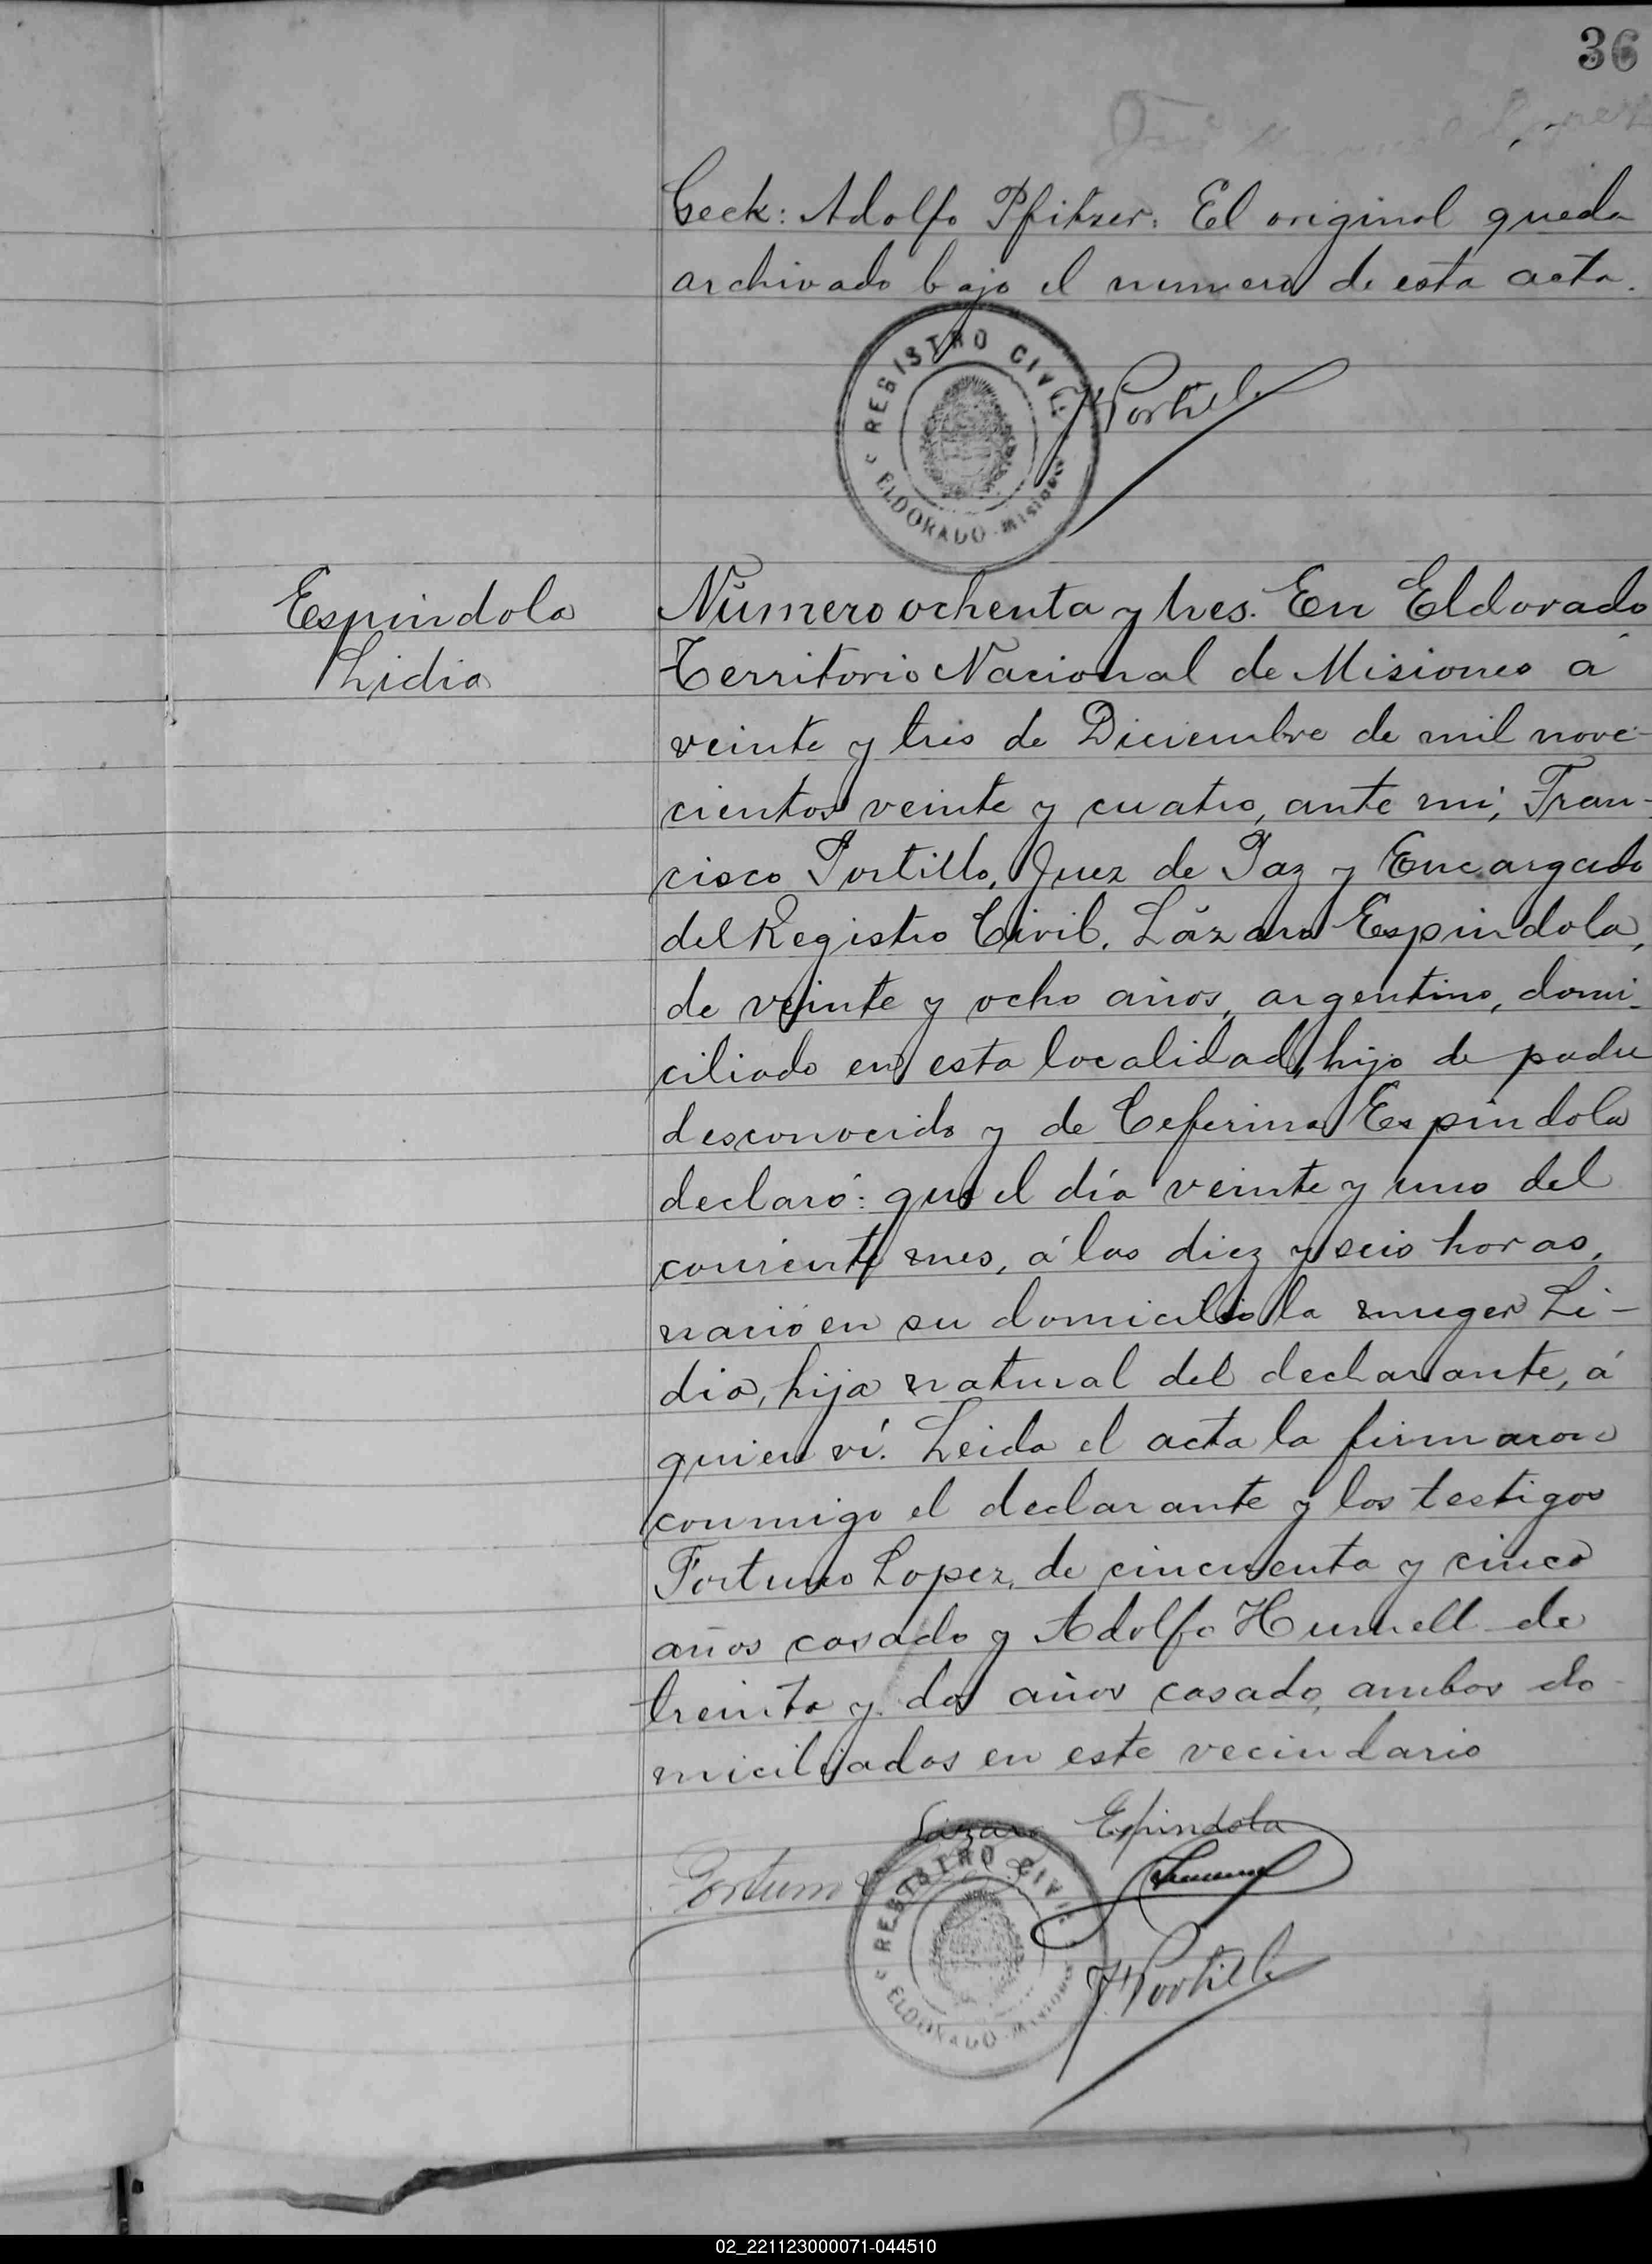 36
Geck: Adolfo Pfitzer: El original queda
archivado bajo el numero de esta acta.
REGISTRO CIVIL
ELDORADO - Misiones
F Portillo
Espindola
Lidia
Número ochenta y tres. En Eldorado
Territorio Nacional de Misiones a
veinte y tres de Diciembre de mil nove-
cientos veinte y cuatro, ante mi, Fran-
cisco Portillo, Juez de Paz y Encargado
del Registro Civil. Lázaro Espindola,
de veinte y ocho años, argentino, domi-
ciliado en esta localidad, hijo de padre
desconocido y de Ceferina Espindola
declaró: que el día veinte y uno del
corriente mes, á las diez y seis horas,
nació en su domicilio la muger Li-
dia, hija natural del declarante, á
quien ví. Leida el acta la firmaron
conmigo el declarante y los testigos
Fortuno Lopez, de cincuenta y cinco
años casado y Adolfo Hunnell de
treinta y dos años casado, ambos do-
miciliados en este vecindario
Lázaro Espindola
Fortuno
REGISTRO CIVIL
ELDORADO - Misiones
F Portillo
02_221123000071-044510